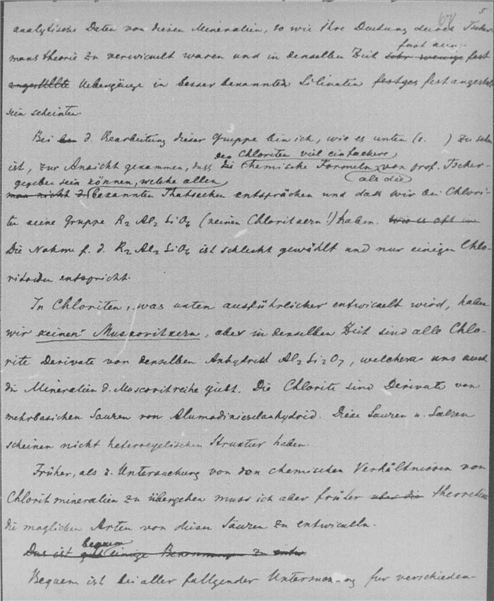 5
68
analytische Daten von diesen Mineralien, so wie Ihre Deutung durch Tscher-
maks theorie zu verwickelt waren und in denselben Zeit
fast
angestellte Uebergänge in besser bekannten Silicaten fast
sein scheinten.
Bei d. Bearbeitung dieser Gruppe bin ich, wie es unten (s. ) zu sehen
ist, zur Ansicht gekommen, dass die Chemische Formeln von prof. Tscher-
den Chloriten viel einfachere
gegeben sein können, welche allen
(als die)
bekannten Thatsachen entsprächen und dass wir bei Chlori-
ten eine Gruppe R2 Al2 SiO6 (keinen Chloritkern!) haben.
Die Nahme f. d. R2 Al2 SiO6 ist schlecht gewählt und nur einigen Chlo-
ritoiden entspricht.
In Chloriten, was unten ausführlicher entwickelt wird, haben
wir keinen Muscovitkern, aber in denselben Zeit sind alle Chlo-
rite Derivate von denselben Anhydrid Al2 Si2 O7, welcher uns auch
die Mineralien d. Muscovitreihe giebt. Die Chlorite sind Derivate von
mehrbasichen Säuren von Alumodikieselanhydrid. Diese Säuren u. Salzen
scheinen nicht Struktur haben.
Früher, als z. Untersuchung von den chemischen Verhältnissen von
Chloritmineralien zu übergehen muss ich aber früher theoretisch
die moglichen Arten von diesen Säuren zu entwickeln.
Das ist einige zu
bequem
Bequem ist bei aller folgender Untersuchung für verschieden-